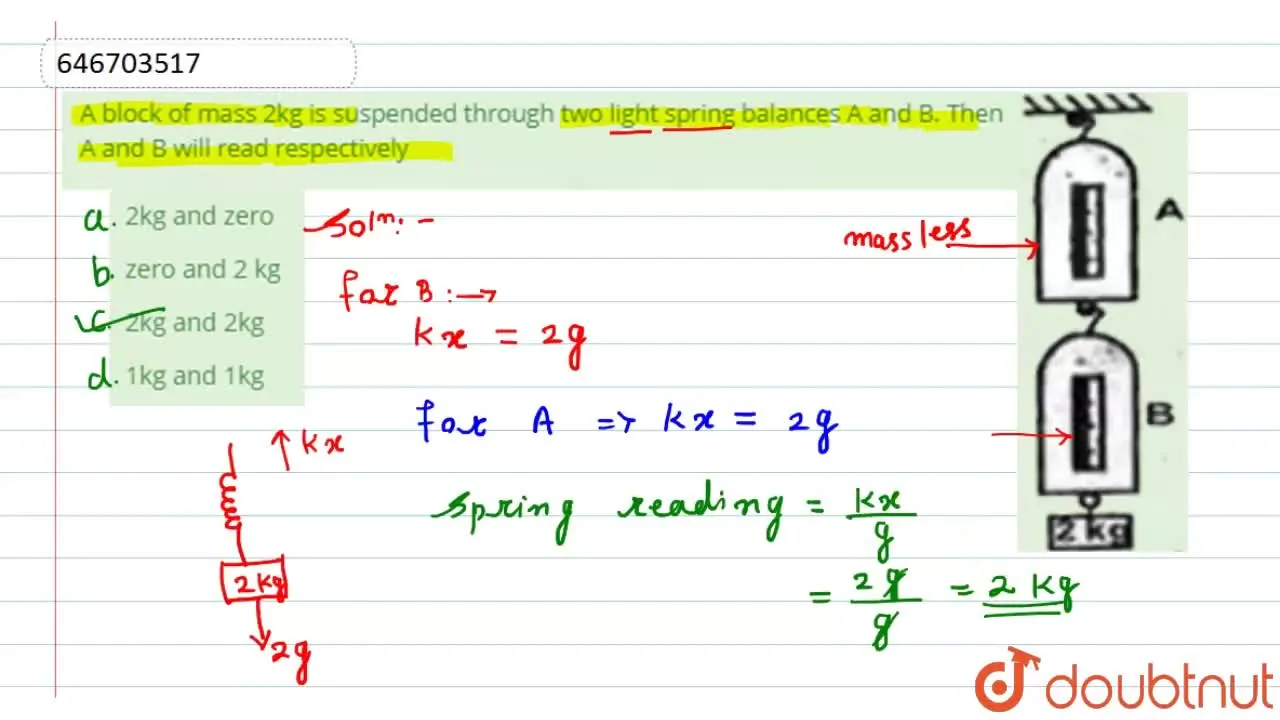 646703517
A block of mass 2kg is suspended through two light spring balances A and B. Then
A and B will read respectively
a. 2kg and zero
b. zero and 2 kg
c. 2kg and 2kg
d. 1kg and 1kg
Solⁿ: -
for B :→
kx = 2g
for A => kx = 2g
spring reading = kx/g
= 2g/g = 2 kg
kx
2kg
2g
massless
A
B
2 kg
doubtnut